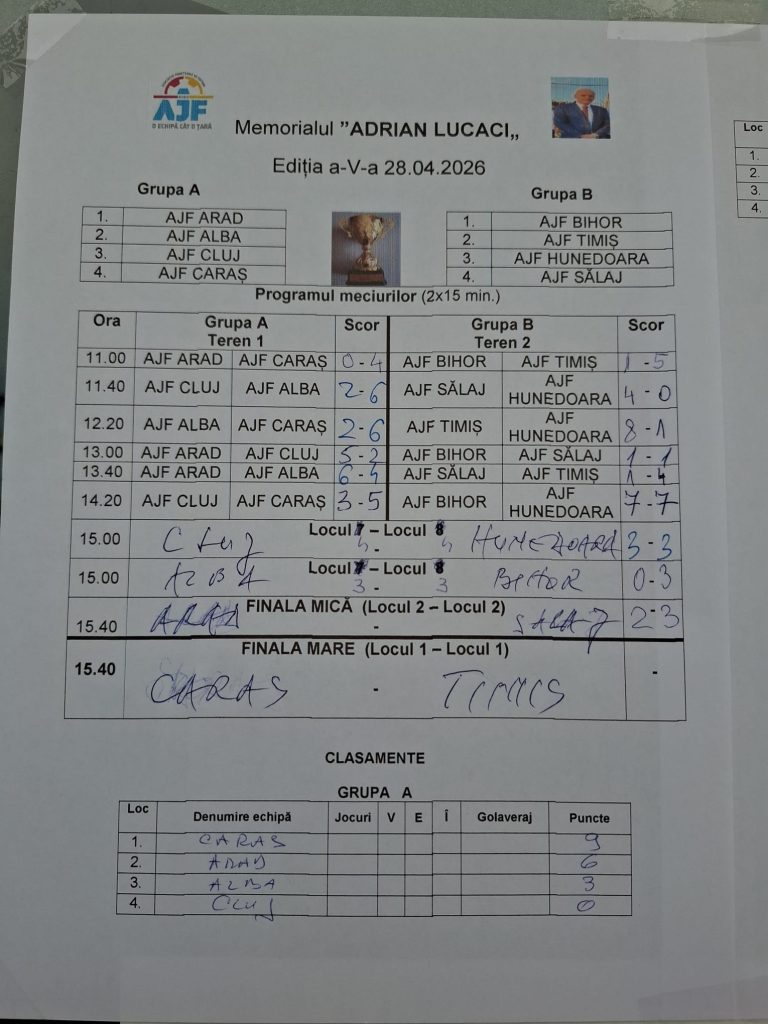 AJF
O ECHIPĂ CÂT O ȚARĂ
Memorialul ”ADRIAN LUCACI„
Ediția a-V-a 28.04.2026
Grupa A
1. AJF ARAD
2. AJF ALBA
3. AJF CLUJ
4. AJF CARAȘ
Grupa B
1. AJF BIHOR
2. AJF TIMIȘ
3. AJF HUNEDOARA
4. AJF SĂLAJ
Programul meciurilor (2x15 min.)
Ora Grupa A Teren 1 Scor Grupa B Teren 2 Scor
11.00 AJF ARAD AJF CARAȘ 0-4 AJF BIHOR AJF TIMIȘ 1-5
11.40 AJF CLUJ AJF ALBA 2-6 AJF SĂLAJ AJF HUNEDOARA 4-0
12.20 AJF ALBA AJF CARAȘ 2-6 AJF TIMIȘ AJF HUNEDOARA 8-1
13.00 AJF ARAD AJF CLUJ 5-2 AJF BIHOR AJF SĂLAJ 1-1
13.40 AJF ARAD AJF ALBA 6-4 AJF SĂLAJ AJF TIMIȘ 1-4
14.20 AJF CLUJ AJF CARAȘ 3-5 AJF BIHOR AJF HUNEDOARA 7-7
Locul – Locul
15.00 CLUJ 4 - 4 HUNEDOARA 3-3
Locul – Locul
15.00 ALBA 3 - 3 BIHOR 0-3
FINALA MICĂ (Locul 2 – Locul 2)
15.40 ARAD - SALAJ 2-3
FINALA MARE (Locul 1 – Locul 1)
15.40 CARAS - TIMIS -
CLASAMENTE
GRUPA A
Loc Denumire echipă Jocuri V E Î Golaveraj Puncte
1. CARAS 9
2. ARAD 6
3. ALBA 3
4. CLUJ 0
Loc
1.
2.
3.
4.